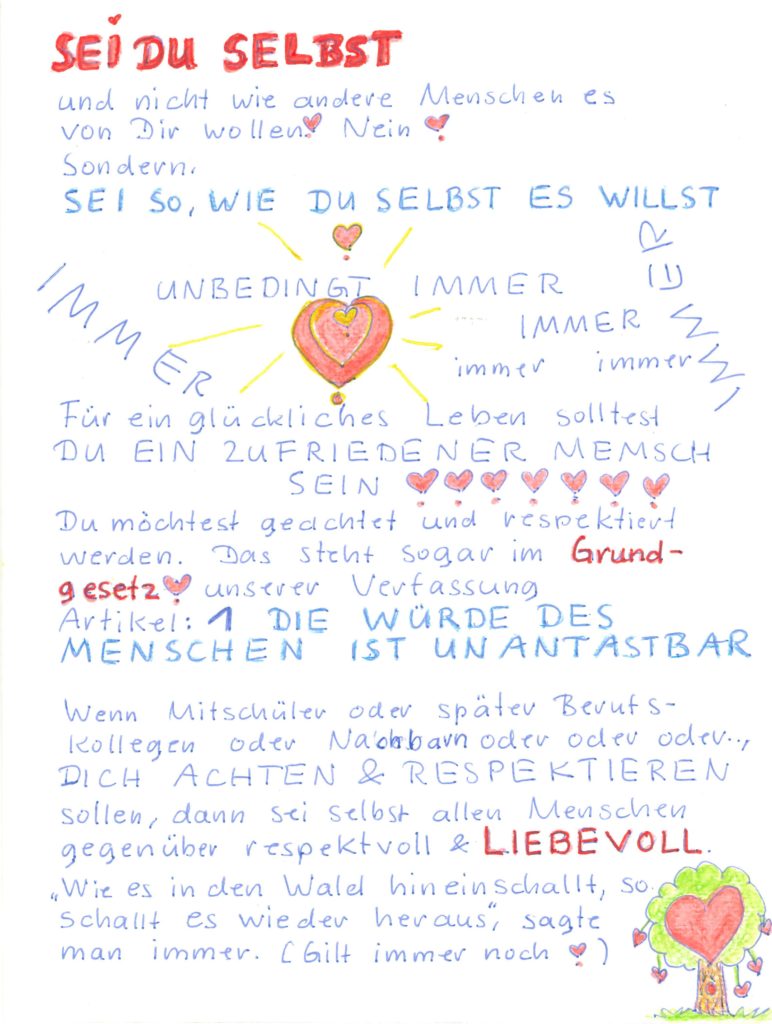 SEI DU SELBST
und nicht wie andere Menschen es
von Dir wollen! Nein!
Sondern.
SEI SO, WIE DU SELBST ES WILLST
UNBEDINGT IMMER
IMMER
IMMER
IMMER
immer immer
Für ein glückliches Leben solltest
DU EIN ZUFRIEDENER MEMSCH
SEIN !!!!!!!
Du möchtest geachtet und respektiert
werden. Das steht sogar im Grund-
gesetz! unserer Verfassung
Artikel: 1 DIE WÜRDE DES
MENSCHEN IST UNANTASTBAR
Wenn Mitschüler oder später Berufs-
kollegen oder Nachbarn oder oder oder..,
DICH ACHTEN & RESPEKTIEREN
sollen, dann sei selbst allen Menschen
gegenüber respektvoll & LIEBEVOLL.
„Wie es in den Wald hineinschallt, so
schallt es wieder heraus", sagte
man immer. (Gilt immer noch !)